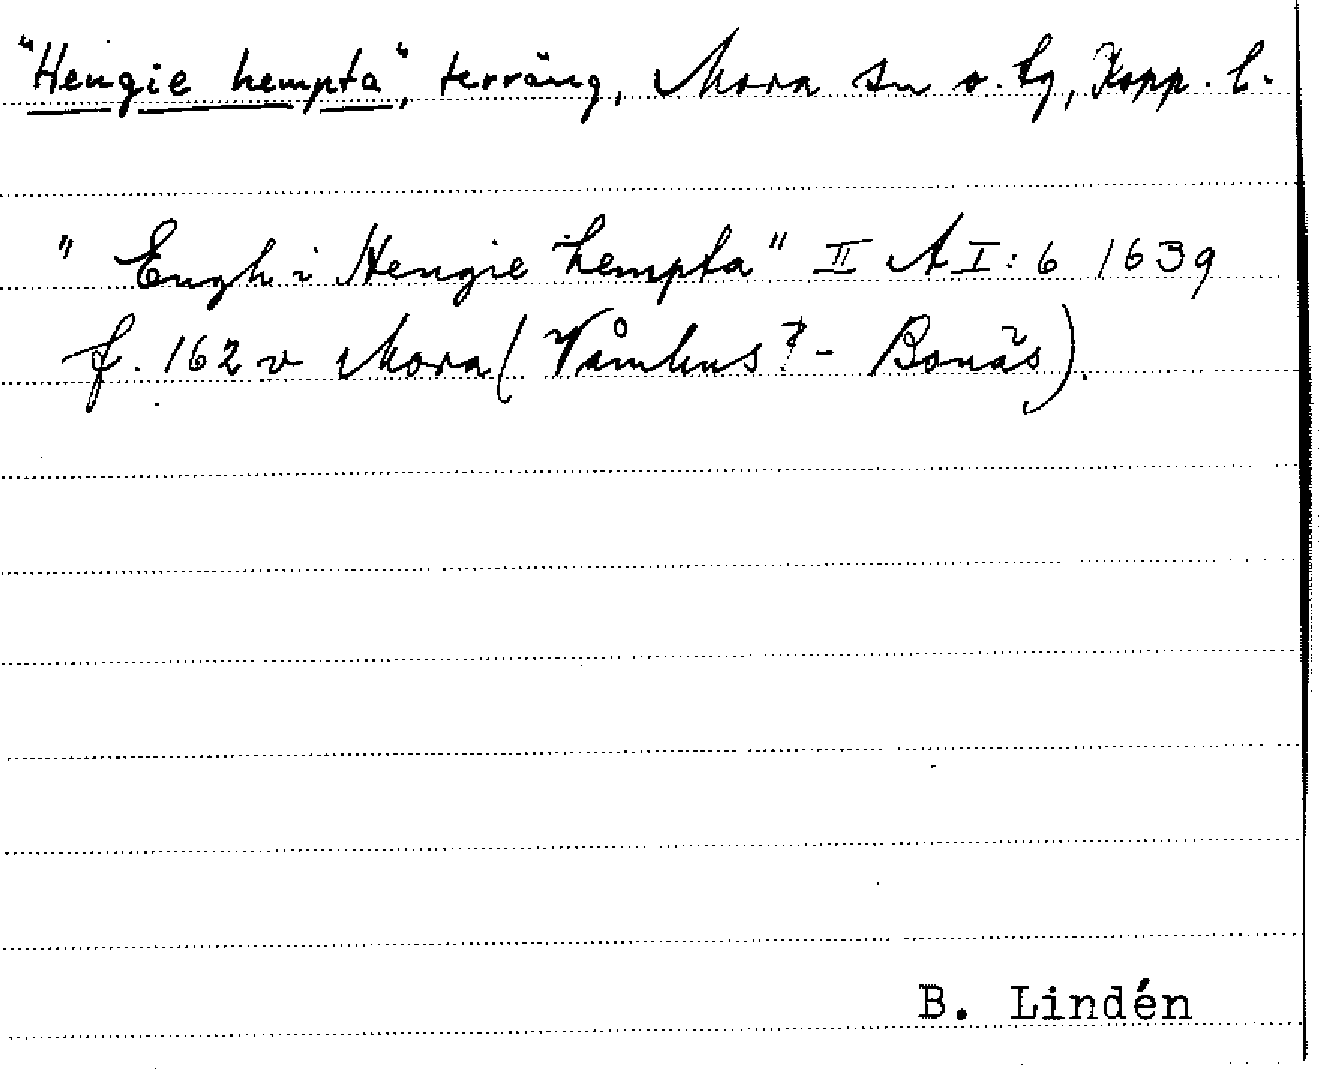 "Hengie hempta", terräng, Mora sn o. tg, Kopp. l.
" Engh i Hengie hempta" II A I: 6 1639
f. 162 v Mora (Våmhus? - Bonäs).
B. Lindén